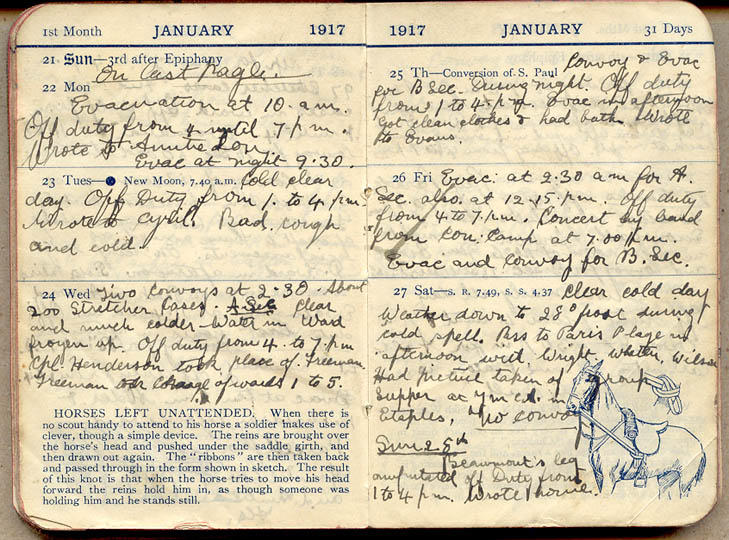 1st Month JANUARY 1917
21 Sun—3rd after Epiphany
On last page.
22 Mon
Evacuation at 10 a.m.
Off duty from 4 until 7 p.m.
Wrote to Auntie Lou.
Evac at night 9.30.
23 Tues—● New Moon, 7.40 a.m. Cold clear
day. Off Duty from 1. to 4 p.m.
Wrote to Cyril. Bad cough
and cold.
24 Wed Two Convoys at 2.30. About
200 Stretcher Cases. A Sec Clear
and much colder—Water in Ward
frozen up. Off duty from 4. to 7 p.m
Cpl. Henderson took place of Freeman
Freeman took charge of wards 1 to 5.
HORSES LEFT UNATTENDED. When there is
no scout handy to attend to his horse a soldier makes use of
clever, though a simple device. The reins are brought over
the horse's head and pushed under the saddle girth, and
then drawn out again. The "ribbons" are then taken back
and passed through in the form shown in sketch. The result
of this knot is that when the horse tries to move his head
forward the reins hold him in, as though someone was
holding him and he stands still.
1917 JANUARY 31 Days
25 Th—Conversion of S. Paul Convoy & Evac
for B Sec. During night. Off duty
from 1 to 4 p.m. Evac in afternoon
Got clean clothes & had bath. Wrote
to Evans.
26 Fri Evac. at 2.30 a.m for A.
Sec. also at 12.15 p.m. Off duty
from 4 to 7 p.m. Concert by band
from Con. Camp at 7.00 p.m.
Evac and convoy for B. Sec.
27 Sat—S. R. 7.49, S. S. 4.37 Clear cold day
Weather down to 28° frost during
cold spell. Pass to Paris Plage in
afternoon with Wright, Wilson
Had picture taken of group
Supper at Y m C A. in
Etaples, convoy
Sun
Beaumont's leg
amputated off Duty from
1 to 4 p.m. Wrote home.